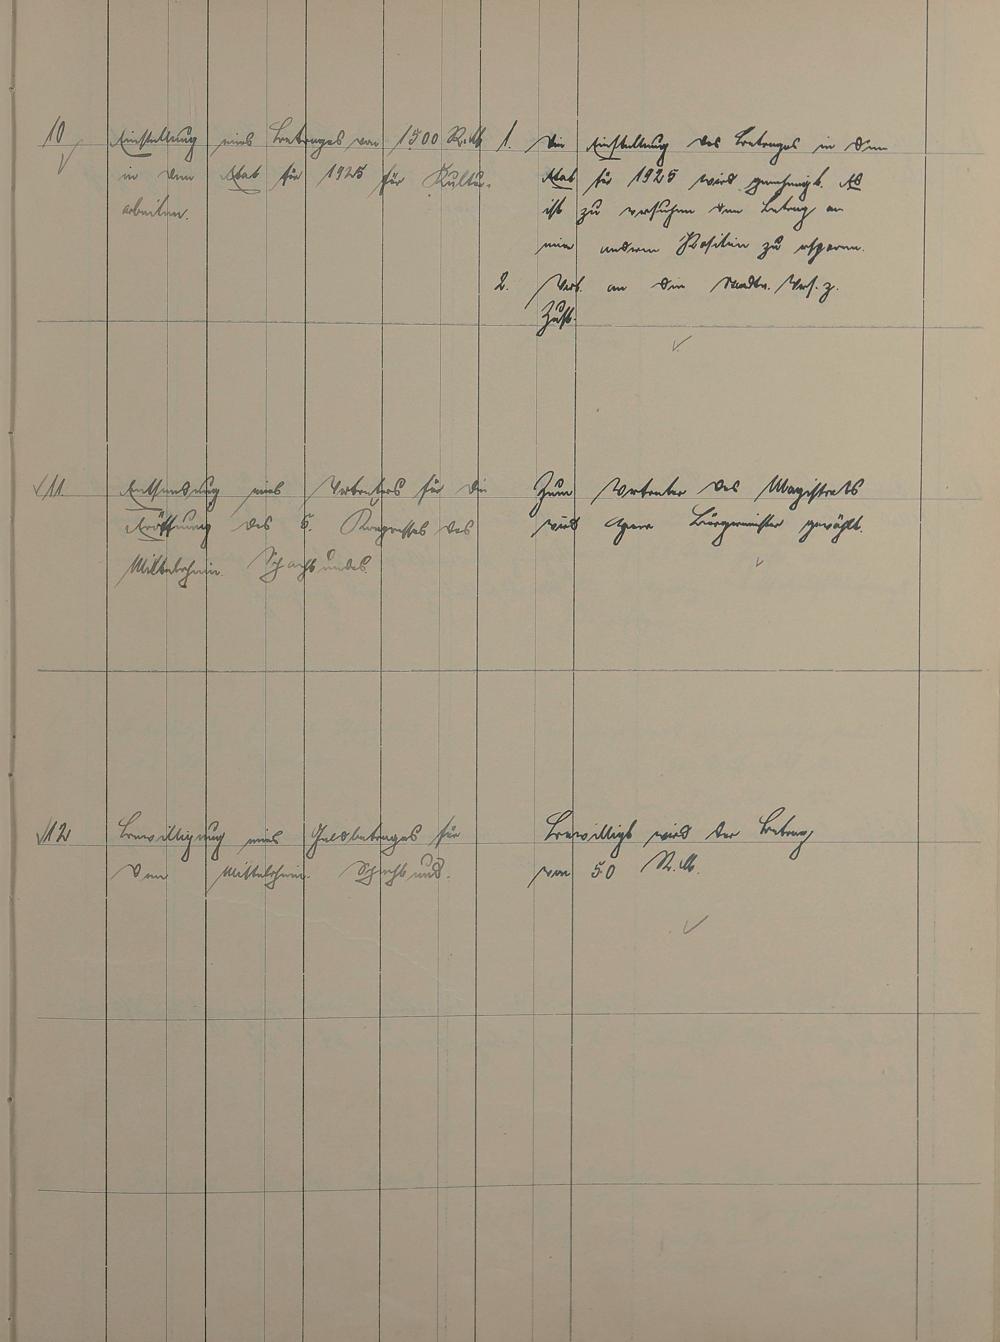 10
Einstellung eines Betrages von 1500 R.M.
in den Etat für 1925 für Kultur-
arbeiten.
1. Die Einstellung des Betrages in den
Etat für 1925 wird genehmigt. Es
ist zu versuchen den Betrag an
einer anderen Position zu ersparen.
2. Vorl. an die Stadtv. Vers. z.
Zust.
11.
Entsendung eines Vertreters für die
Eröffnung des 5. Kongresses des
Mittelrhein. Schachbundes.
Zum Vertreter des Magistrats
wird Herr Bürgermeister gewählt.
12
Bewilligung eines Geldbetrages für
den Mittelrhein. Schachbund.
Bewilligt wird der Betrag
von 50 R.M.